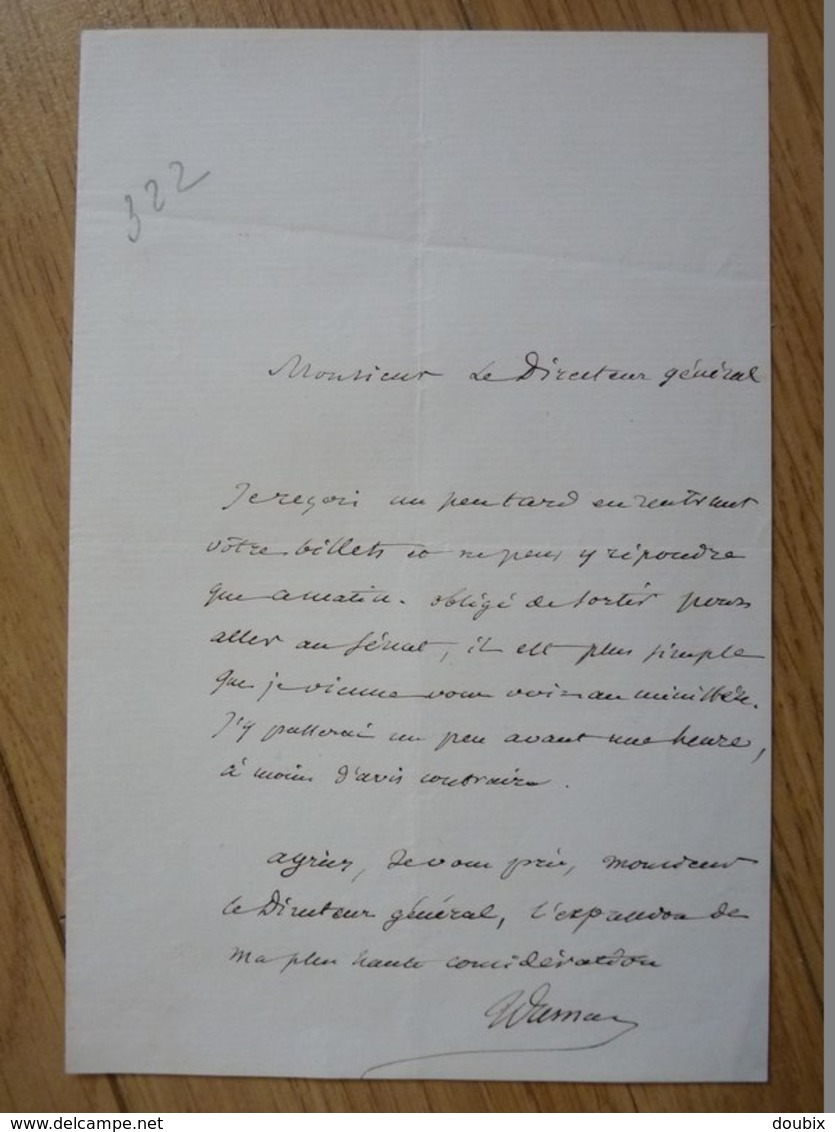 322
Monsieur Le Directeur général
Je reçois un peu tard en rentrant
votre billet et ne peux y répondre
que ce matin. obligé de sortir pour
aller au Sénat, il est plus simple
que je vienne vous voir au ministère.
J'y passerai un peu avant une heure,
à moins d'avis contraire.
agréez, Je vous prie, monsieur
le Directeur général, l'expression de
ma plus haute considération
delcampe.net
doubix